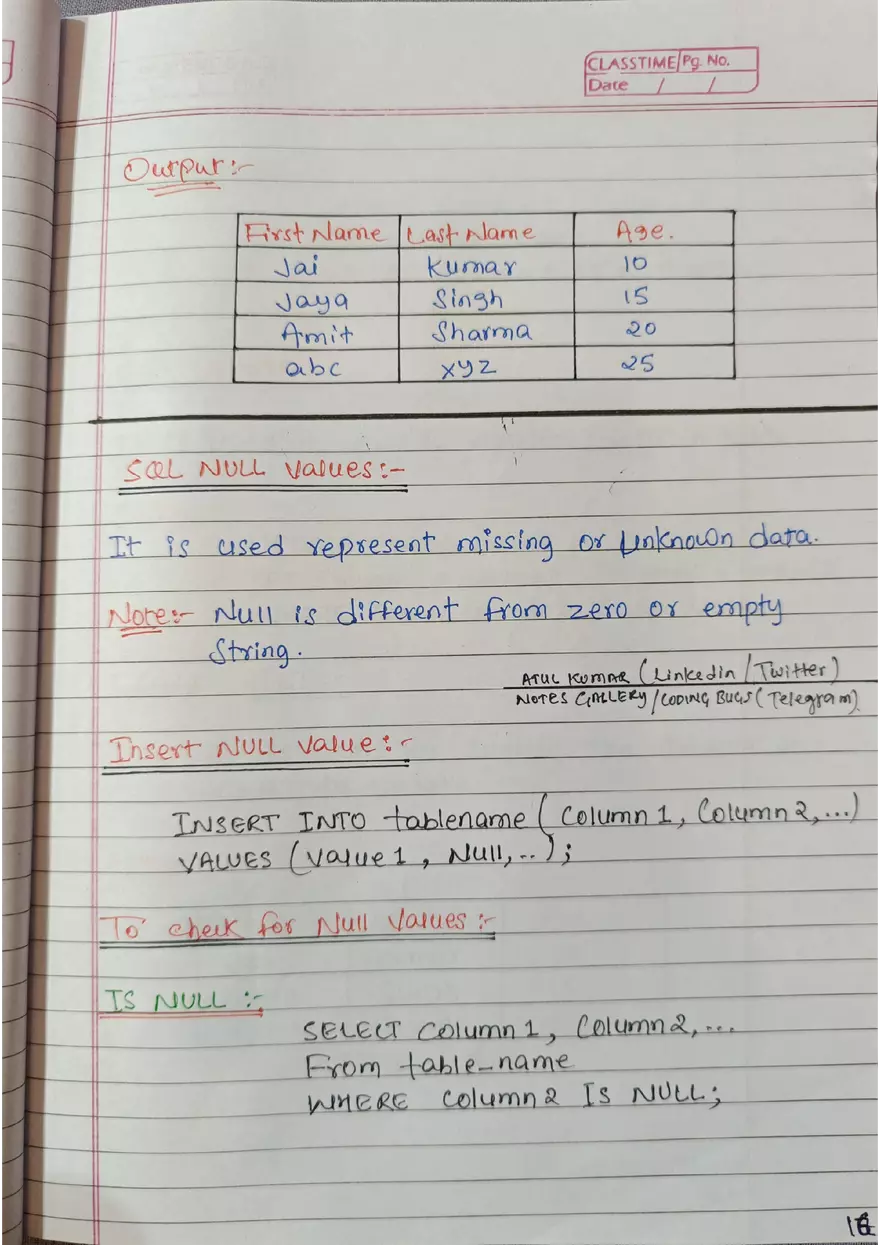 CLASSTIME Pg. No.
Date / /
Output:-
First Name Last Name Age.
Jai Kumar 10
Jaya Singh 15
Amit Sharma 20
abc xyz 25
SQL NULL Values:-
It is used represent missing or Unknown data.
Note:- Null is different from zero or empty
String.
ATUL KUMAR (Linkedin/Twitter)
NOTES GALLERY/CODING BUGS (Telegram)
Insert NULL Value:-
INSERT INTO tablename (Column1, Column2,...)
VALUES (Value1, Null,..);
To check for Null Values:-
IS NULL:-
SELECT Column1, Column2,...
From table_name
WHERE Column2 IS NULL;